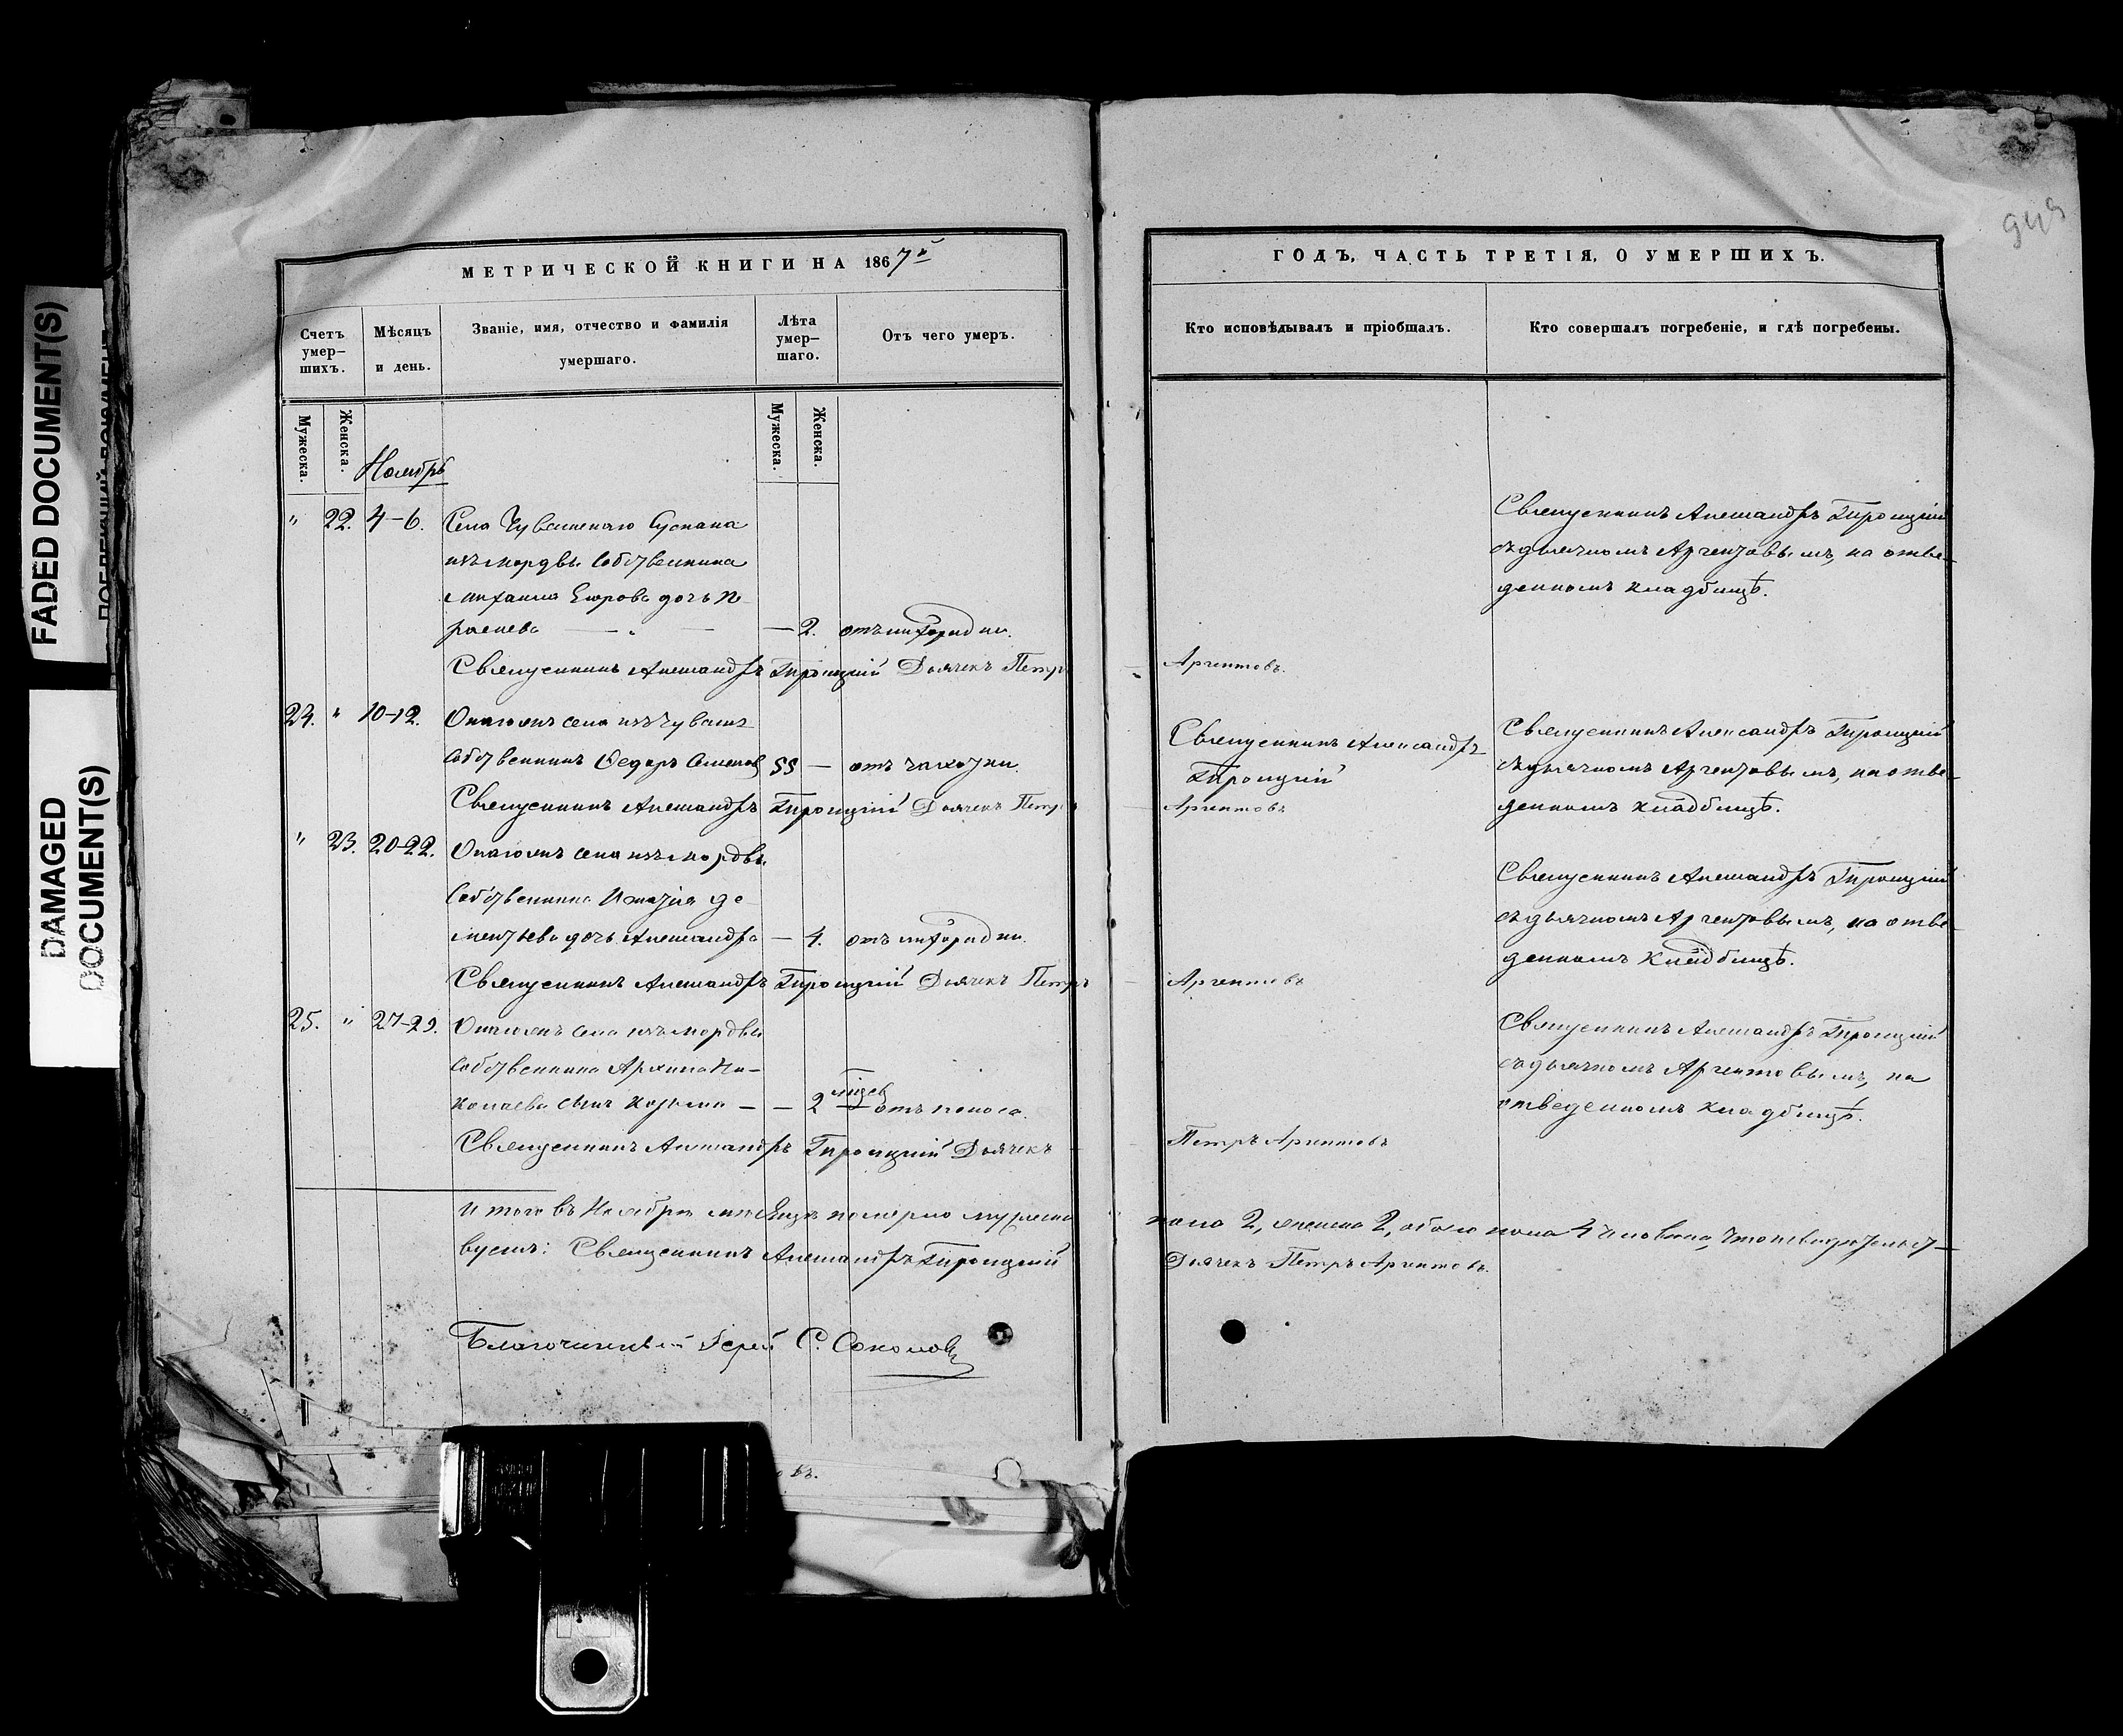 FADED DOCUMENT(S)
DAMAGED
DOCUMENT(S)
МЕТРИЧЕСКОЙ КНИГИ НА 1867й
Счетъ умер-шихъ.
Мѣсяцъ и день.
Званіе, имя, отчество и фамилія умершаго.
Лѣта умер-шаго.
Отъ чего умеръ.
Мужеска.
Женска.
Мужеска.
Женска.
Ноябрь
" 22. 4-6. Села Чувашскаго Сускана
изъ мордвы собственника
Михаила Егорова дочь Па-
расева — " — — 2. отъ лихорадки.
Священникъ Александръ Троицкій Дьячекъ Петръ
24. " 10-12. Онагожъ села изъ чувашъ
собственникъ Ѳедоръ Семеновъ 55 — отъ чахотки.
Священникъ Александръ Троицкій Дьячекъ Петръ
" 23. 20-22. Онагожъ села изъ мордвы
собственника Игнатія Де-
ментьева дочь Александра — 4. отъ лихорадки.
Священникъ Александръ Троицкій Дьячекъ Петръ
25. " 27-29. Онагожъ села изъ мордвы
собственника Архипа Ни-
колаева сынъ Козьма — — 2 мѣсец. отъ поноса.
Священникъ Александръ Троицкій Дьячекъ
Итого въ Ноябрѣ мѣсяцѣ померло мужеска
вуемъ: Священникъ Александръ Троицкій
Благочинный Іерей С. Соколовъ
ГОДЪ, ЧАСТЬ ТРЕТІЯ, О УМЕРШИХЪ.
Кто исповѣдывалъ и пріобщалъ.
Кто совершалъ погребеніе, и гдѣ погребены.
Священникъ Александръ Троицкій
съ дьячкомъ Аргентовымъ, на отве-
денномъ кладбищѣ.
Аргентовъ.
Священникъ Александръ
Троицкій
Аргентовъ
Священникъ Александръ Троицкій
съ дьячкомъ Аргентовымъ, на отве-
денномъ кладбищѣ.
Священникъ Александръ Троицкій
съ дьячкомъ Аргентовымъ, на отве-
денномъ кладбищѣ.
Аргентовъ
Священникъ Александръ Троицкій
съ дьячкомъ Аргентовымъ, на
отведенномъ кладбищѣ.
Петръ Аргентовъ
пола 2, женска 2, обоего пола 4 человека, что и свидѣтельст-
Дьячекъ Петръ Аргентовъ.